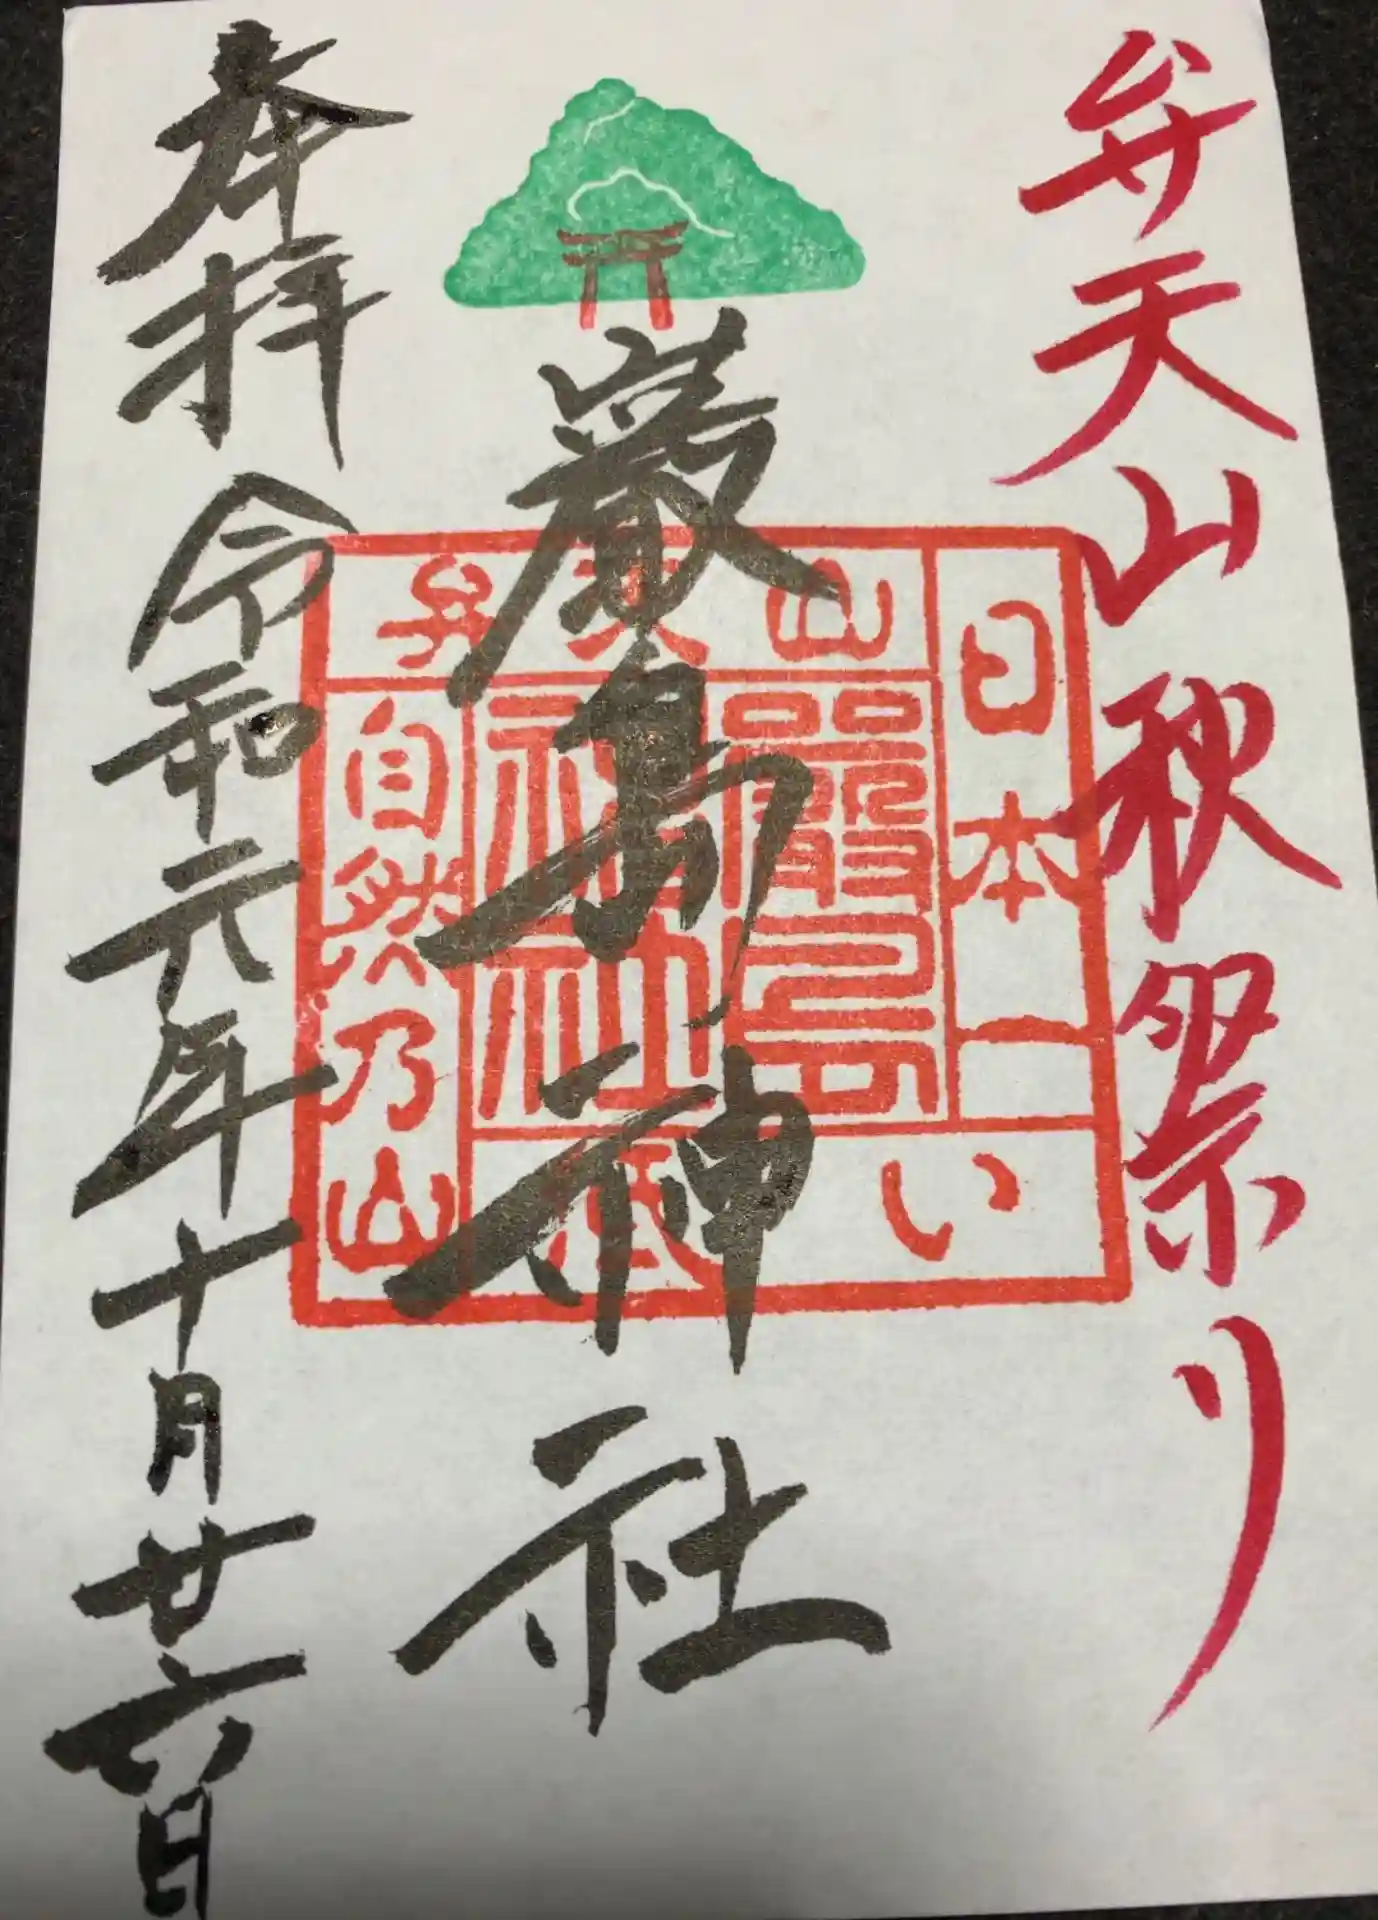 弁天山秋祭り
厳島神社
奉拝 令和元年十月廿六日
弁天山
日本一
低い
自然乃山
嚴島
神社